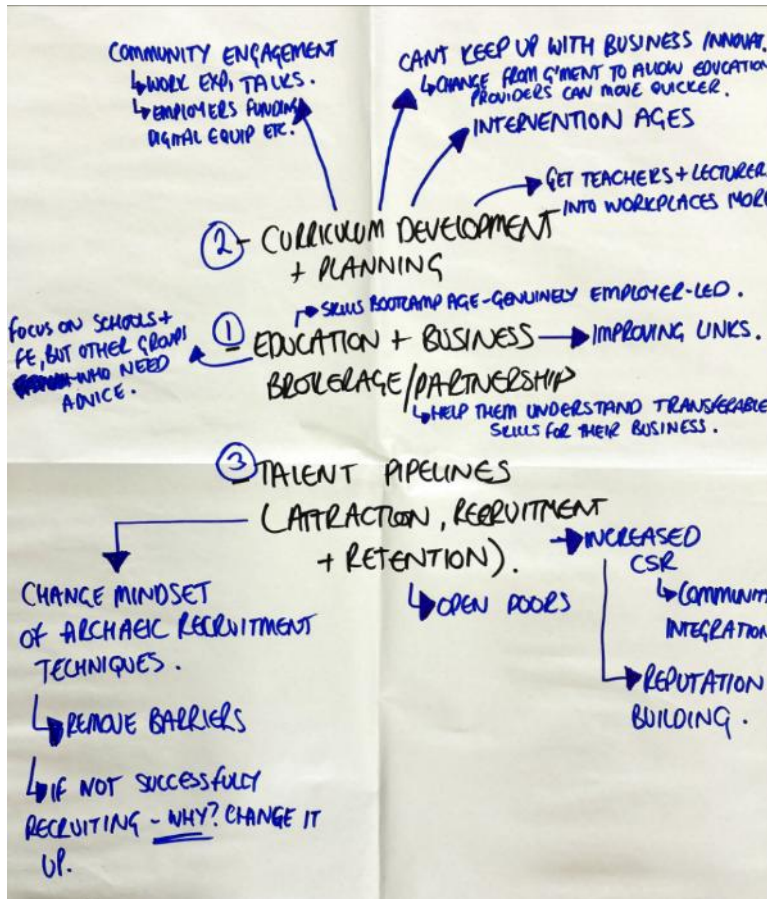 COMMUNITY ENGAGEMENT
↳WORK EXP, TALKS.
↳EMPLOYERS FUNDING
DIGITAL EQUIP ETC.
CANT KEEP UP WITH BUSINESS INNOVAT.
↳CHANGE FROM G'MENT TO ALLOW EDUCATION
PROVIDERS CAN MOVE QUICKER.
INTERVENTION AGES
GET TEACHERS + LECTURER
INTO WORKPLACES MORE
2 - CURRICULUM DEVELOPMENT
+ PLANNING
SKILLS BOOTCAMP AGE - GENUINELY EMPLOYER-LED.
FOCUS ON SCHOOLS +
FE, BUT OTHER GROUPS
WHO NEED
ADVICE.
1 - EDUCATION + BUSINESS
BROKERAGE/PARTNERSHIP
IMPROVING LINKS.
↳HELP THEM UNDERSTAND TRANSFERABLE
SKILLS FOR THEIR BUSINESS.
3 - TALENT PIPELINES
(ATTRACTION, RECRUITMENT
+ RETENTION).
CHANGE MINDSET
OF ARCHAEIC RECRUITMENT
TECHNIQUES.
↳REMOVE BARRIERS
↳IF NOT SUCCESSFULLY
RECRUITING - WHY? CHANGE IT
UP.
↳OPEN DOORS
INCREASED
CSR
↳COMMUNIT
INTEGRATION
REPUTATION
BUILDING.